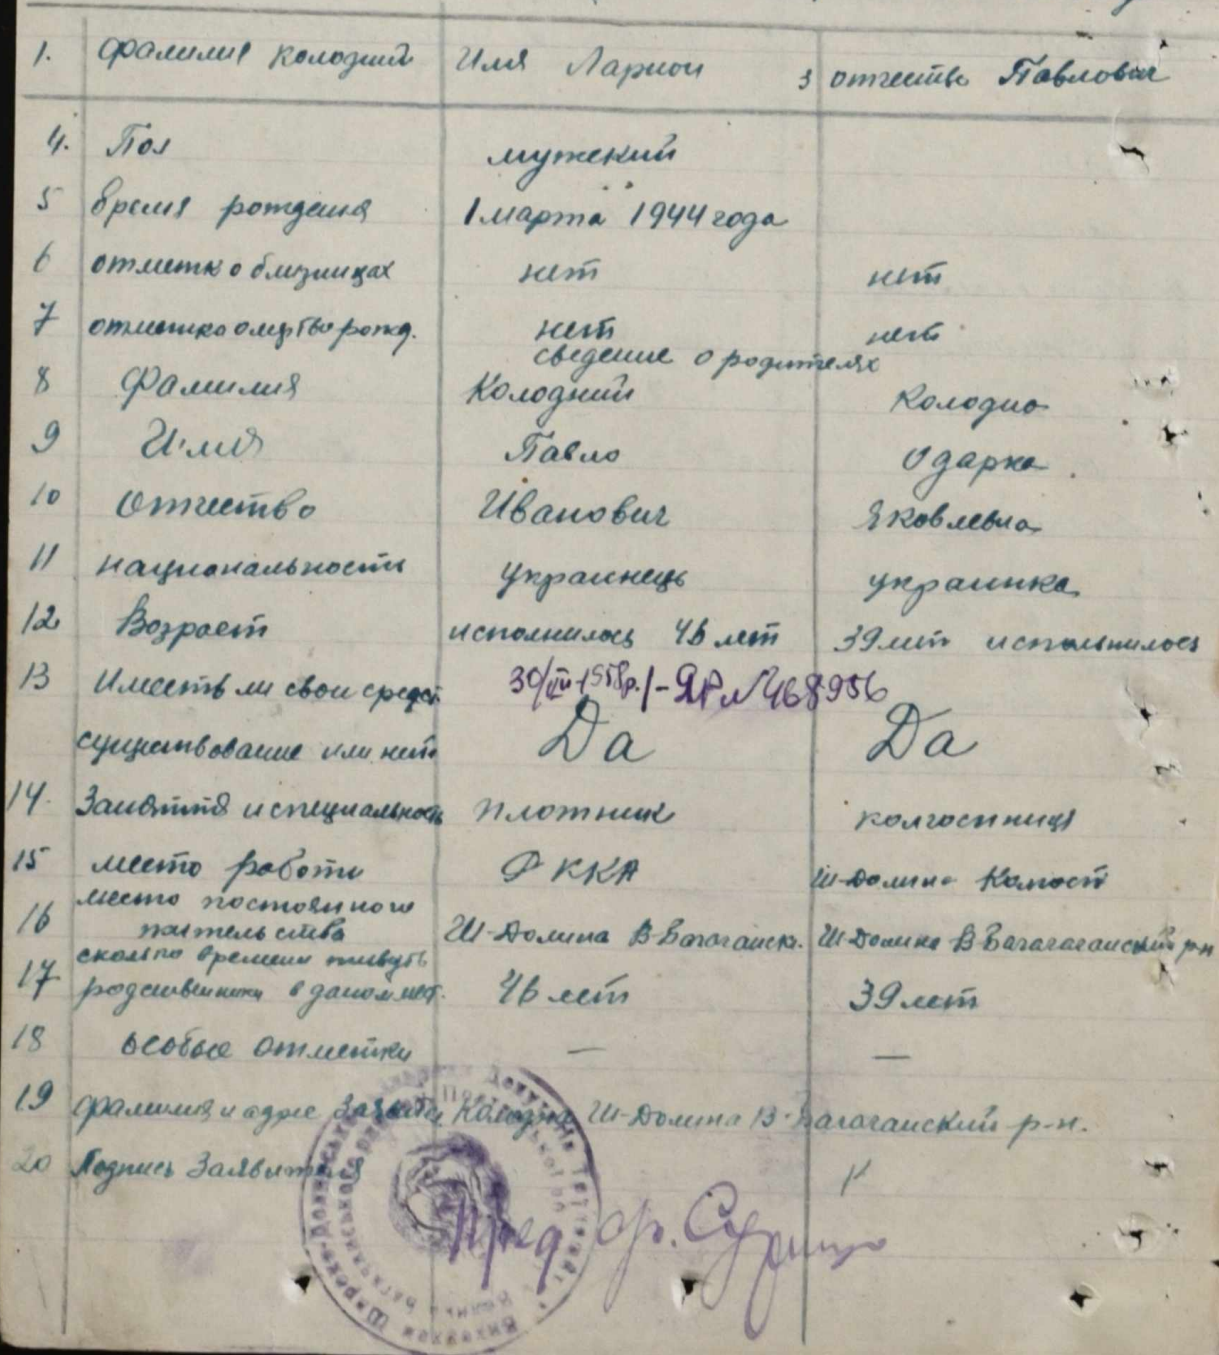 1. Фамилия Колодний Имя Ларион 3 отчество Павлович
4. Пол мужский
5 Время рождения 1 марта 1944 года
6 отметк о близницах нет нет
7 отметка о мертво рожд. нет нет
сведение о родителях
8 Фамилия Колодний Колодна
9 Имя Павло Одарка
10 Отчество Иванович Яковлевна
11 национальность украинець украинка
12 Возраст исполнилось 46 лет 39 лет исполнилось
13 Имеет ли свои средст 30/VII-1958р./-ЯР № 468956
существование или нет Да Да
14. Заняття и специальность плотник колгоспниця
15 место работи РККА Ш-Долина Колхост
место постоянного
16 жительства Ш-Долина В-Багачанск. Ш-Долина В-Багачанский р-н
сколько времени живуть
17 родственники в даном мест. 46 лет 39 лет
18 особые отметки — —
19 фамилия и адрес Заявител Колодна Ш-Долина В-Багачанский р-н.
20 Подпись Заявителя
Пред с/р.